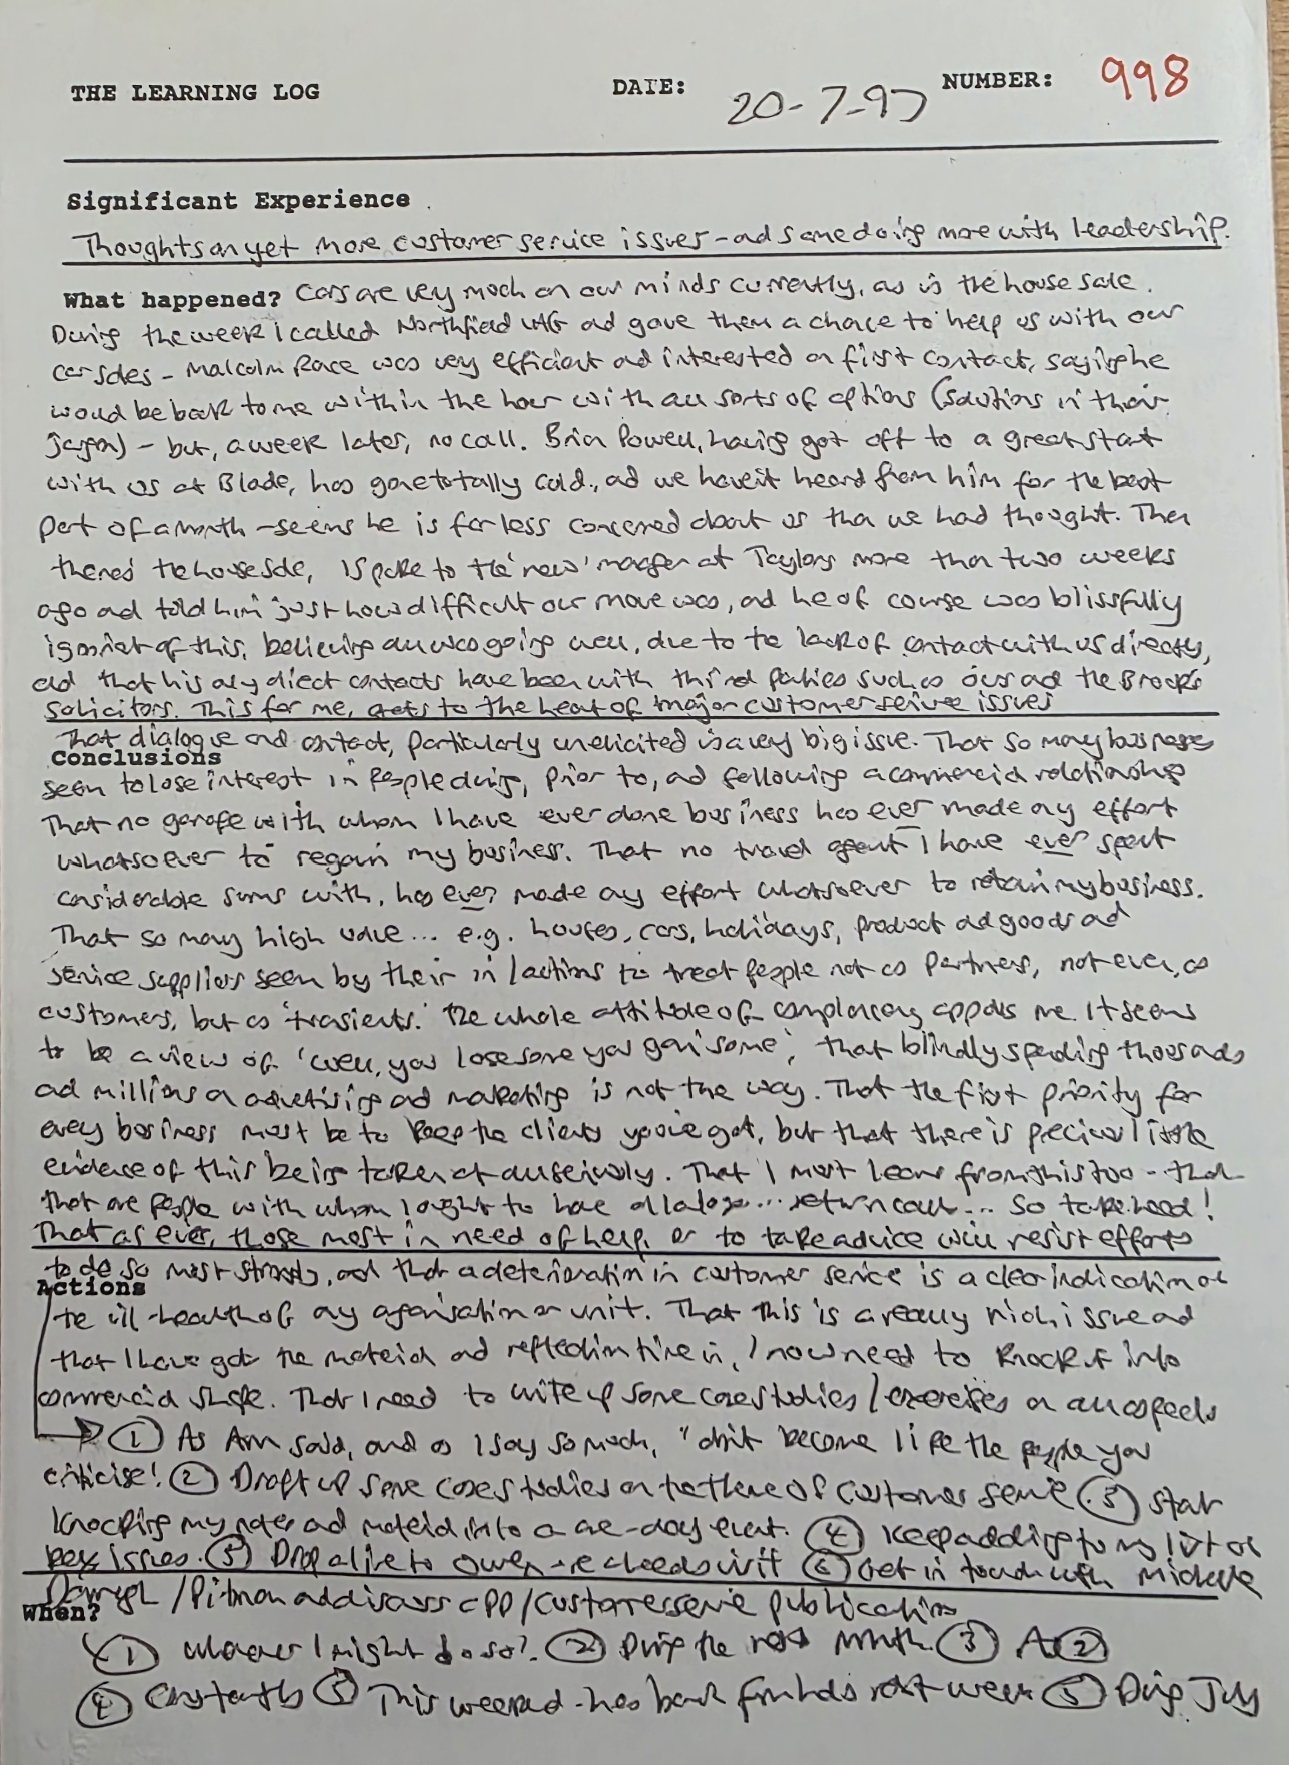 THE LEARNING LOG DATE: 20-7-97 NUMBER: 998
Significant Experience
Thoughts on yet more customer service issues - and some doing more with leadership.
What happened? Cars are very much on our minds currently, as is the house sale.
During the week I called Northfield and gave them a chance to help us with our
car sales - Malcolm Race was very efficient and interested on first contact, saying he
would be back to me within the hour with all sorts of options (solutions in their
jargon) - but, a week later, no call. Brian Powell, having got off to a great start
with us at Blade, has gone totally cold, and we haven't heard from him for the best
part of a month - seems he is far less concerned about us than we had thought. Then
there's the house side, I spoke to the 'new' manager at Taylors more than two weeks
ago and told him just how difficult our move was, and he of course was blissfully
ignorant of this, believing all was going well, due to the lack of contact with us directly,
and that his only direct contacts have been with third parties such as ours and the Brocks
solicitors. This for me, gets to the heart of major customer service issues
That dialogue and contact, particularly unelicited is a very big issue. That so many businesses
Conclusions
seem to lose interest in people during, prior to, and following a commercial relationship
That no garage with whom I have ever done business has ever made any effort
whatsoever to regain my business. That no travel agent I have ever spent
considerable sums with, has ever made any effort whatsoever to retain my business.
That so many high value... e.g. houses, cars, holidays, product and goods and
service suppliers seem by their in/actions to treat people not as partners, not even, as
customers, but as 'transients.' The whole attitude of complacency appals me. It seems
to be a view of 'well, you lose some you gain some', that blindly spending thousands
and millions on advertising and marketing is not the way. That the first priority for
every business must be to keep the clients you've got, but that there is precious little
evidence of this being taken at all seriously. That I must learn from this too - that
that are people with whom I ought to have dialogue... return calls... so take heed!
That as ever, those most in need of help, or to take advice will resist efforts
to do so most strongly, and that a deterioration in customer service is a clear indication of
Actions
the ill-health of any organisation or unit. That this is a really rich issue and
that I have got the material and reflection time in, I now need to knock it into
commercial shape. That I need to write up some case studies / exercises on all aspects
① As Ann said, and as I say so much, "don't become like the people you
criticise! ② Draft up some case studies on the theme of customer service ③ Start
knocking my notes and material into a one-day event. ④ Keep adding to my list of
key issues. ⑤ Drop a line to Owen - re visit ⑥ Get in touch with Michelle
/ Pitman and discuss CPD / customer service publication
When?
① Whenever I might do so? ② During the next month ③ As ②
④ Constantly ⑤ This weekend - has back from hols next week ⑤ During July